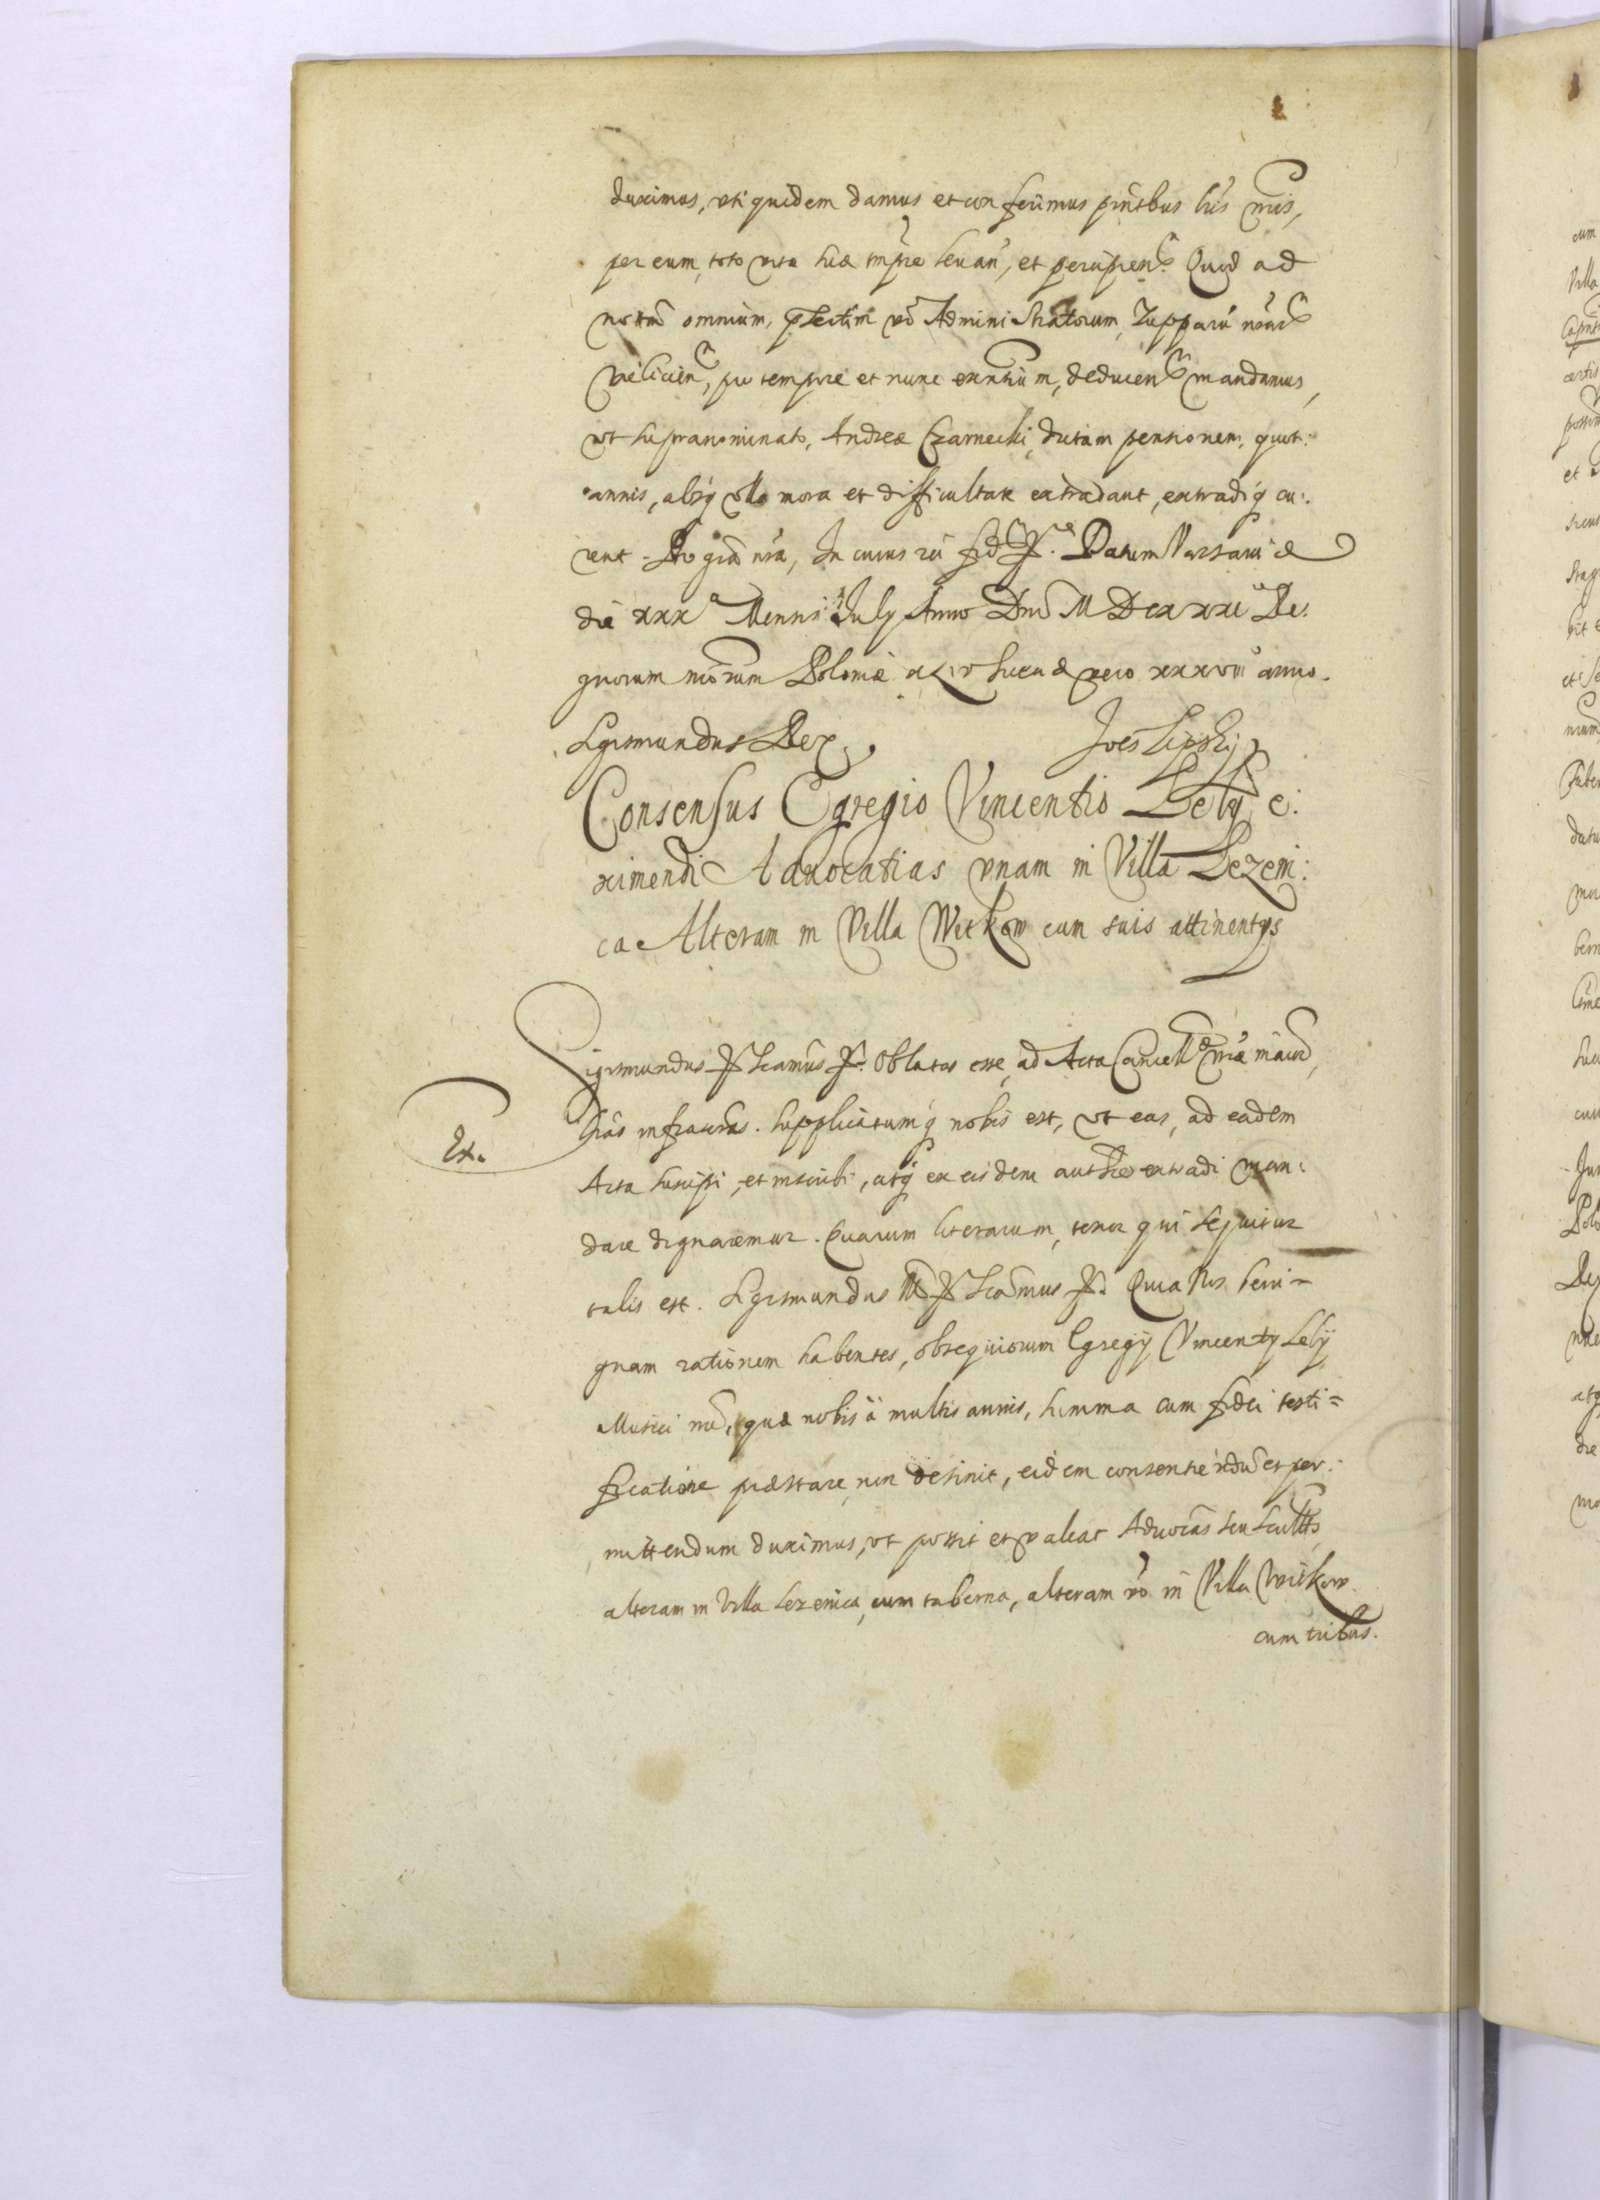 duximus, uti quidem damus et conferimus pñtibus lrīs nrīs,
per eum, toto vitæ suæ tmpre levan̄, et percipien̄. Quod ad
notitiā omnium, pſertim vō Administratorum Zupparū nrārū
Vielicien̄, pro tempore et nunc exñtium, deducen̄ mandamus,
vt supranominato, Andreæ Czarnecki, dictam pensionem, quot:
annis, absq̃ ulla mora et difficultate extradant, extradiq̃ cu:
rent. Pro grā nrā, In cuius rei fid. Datum Varsaviæ
die xxx Mensis July Anno Dnī M D C xxxi Re:
gnorum nrōrum Poloniæ xLiv Sueciæ vero xxxviii anno.
Sigismundus Rex. Joēs Lipsky
Consensus Egregio Vincentio Lely e:
ximendi Advocatias unam in Villa Lezeni:
ca Alteram in Villa Witkow cum suis attinentys
Sigismundus Scāmus. Oblatas esse, ad Acta Cancell nrāe maior̄,
Ex.
lrās infrascrās. Supplicatumq̃ nobis est, vt eas, ad eadem
Acta suscipi, et inscribi, atq̃ ex eisdem extradi man:
dare dignaremur. Quarum literarum, tenor qui sequitur
talis est. Sigismundus III Scāmus. Quia Nos beni=
gnam rationem habentes, obsequiorum Egregij Vincenty Lely
Musici nrī, quæ nobis à multis annis, summa cum fidei testi=
ficatione præstare, non desinit, eidem consentiendū et per:
mittendum duximus, vt possit et valeat Advocās seu Scultēs
alteram in Villa Lezenica, cum taberna, alteram vō in Villa Witkow
cum tribus.